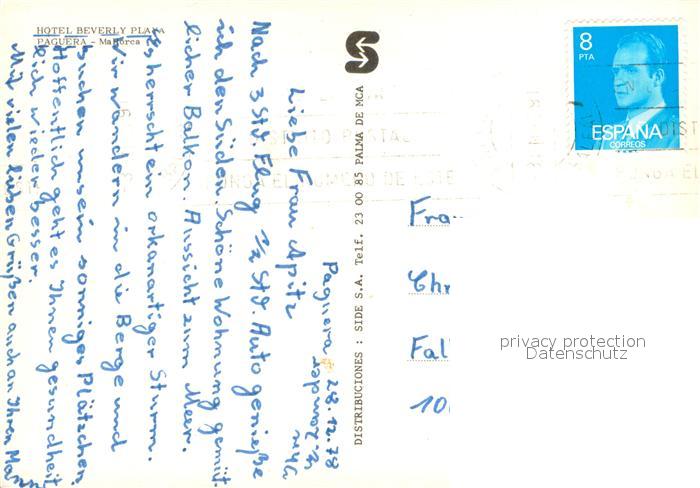 HOTEL BEVERLY PLAYA
PAGUERA - Mallorca
Paguera 28.12.78
Liebe Frau Apitz
Nach 3 Std. Flug ½ Std. Auto genieße
ich den Süden. Schöne Wohnung gemüt
licher Balkon. Aussicht zum Meer.
es herrscht ein orkanartiger Sturm.
Wir wandern in die Berge und
suchen unser sonniges Plätzchen.
Hoffentlich geht es Ihnen gesundheit
lich wieder besser.
Mit vielen lieben Grüßen auch an Ihren Mann
DISTRIBUCIONES : SIDE S.A. Telf. 23 00 85 PALMA DE MCA
S
8
PTA
ESPAÑA
CORREOS
Fra
Chr
Fall
10
privacy protection
Datenschutz